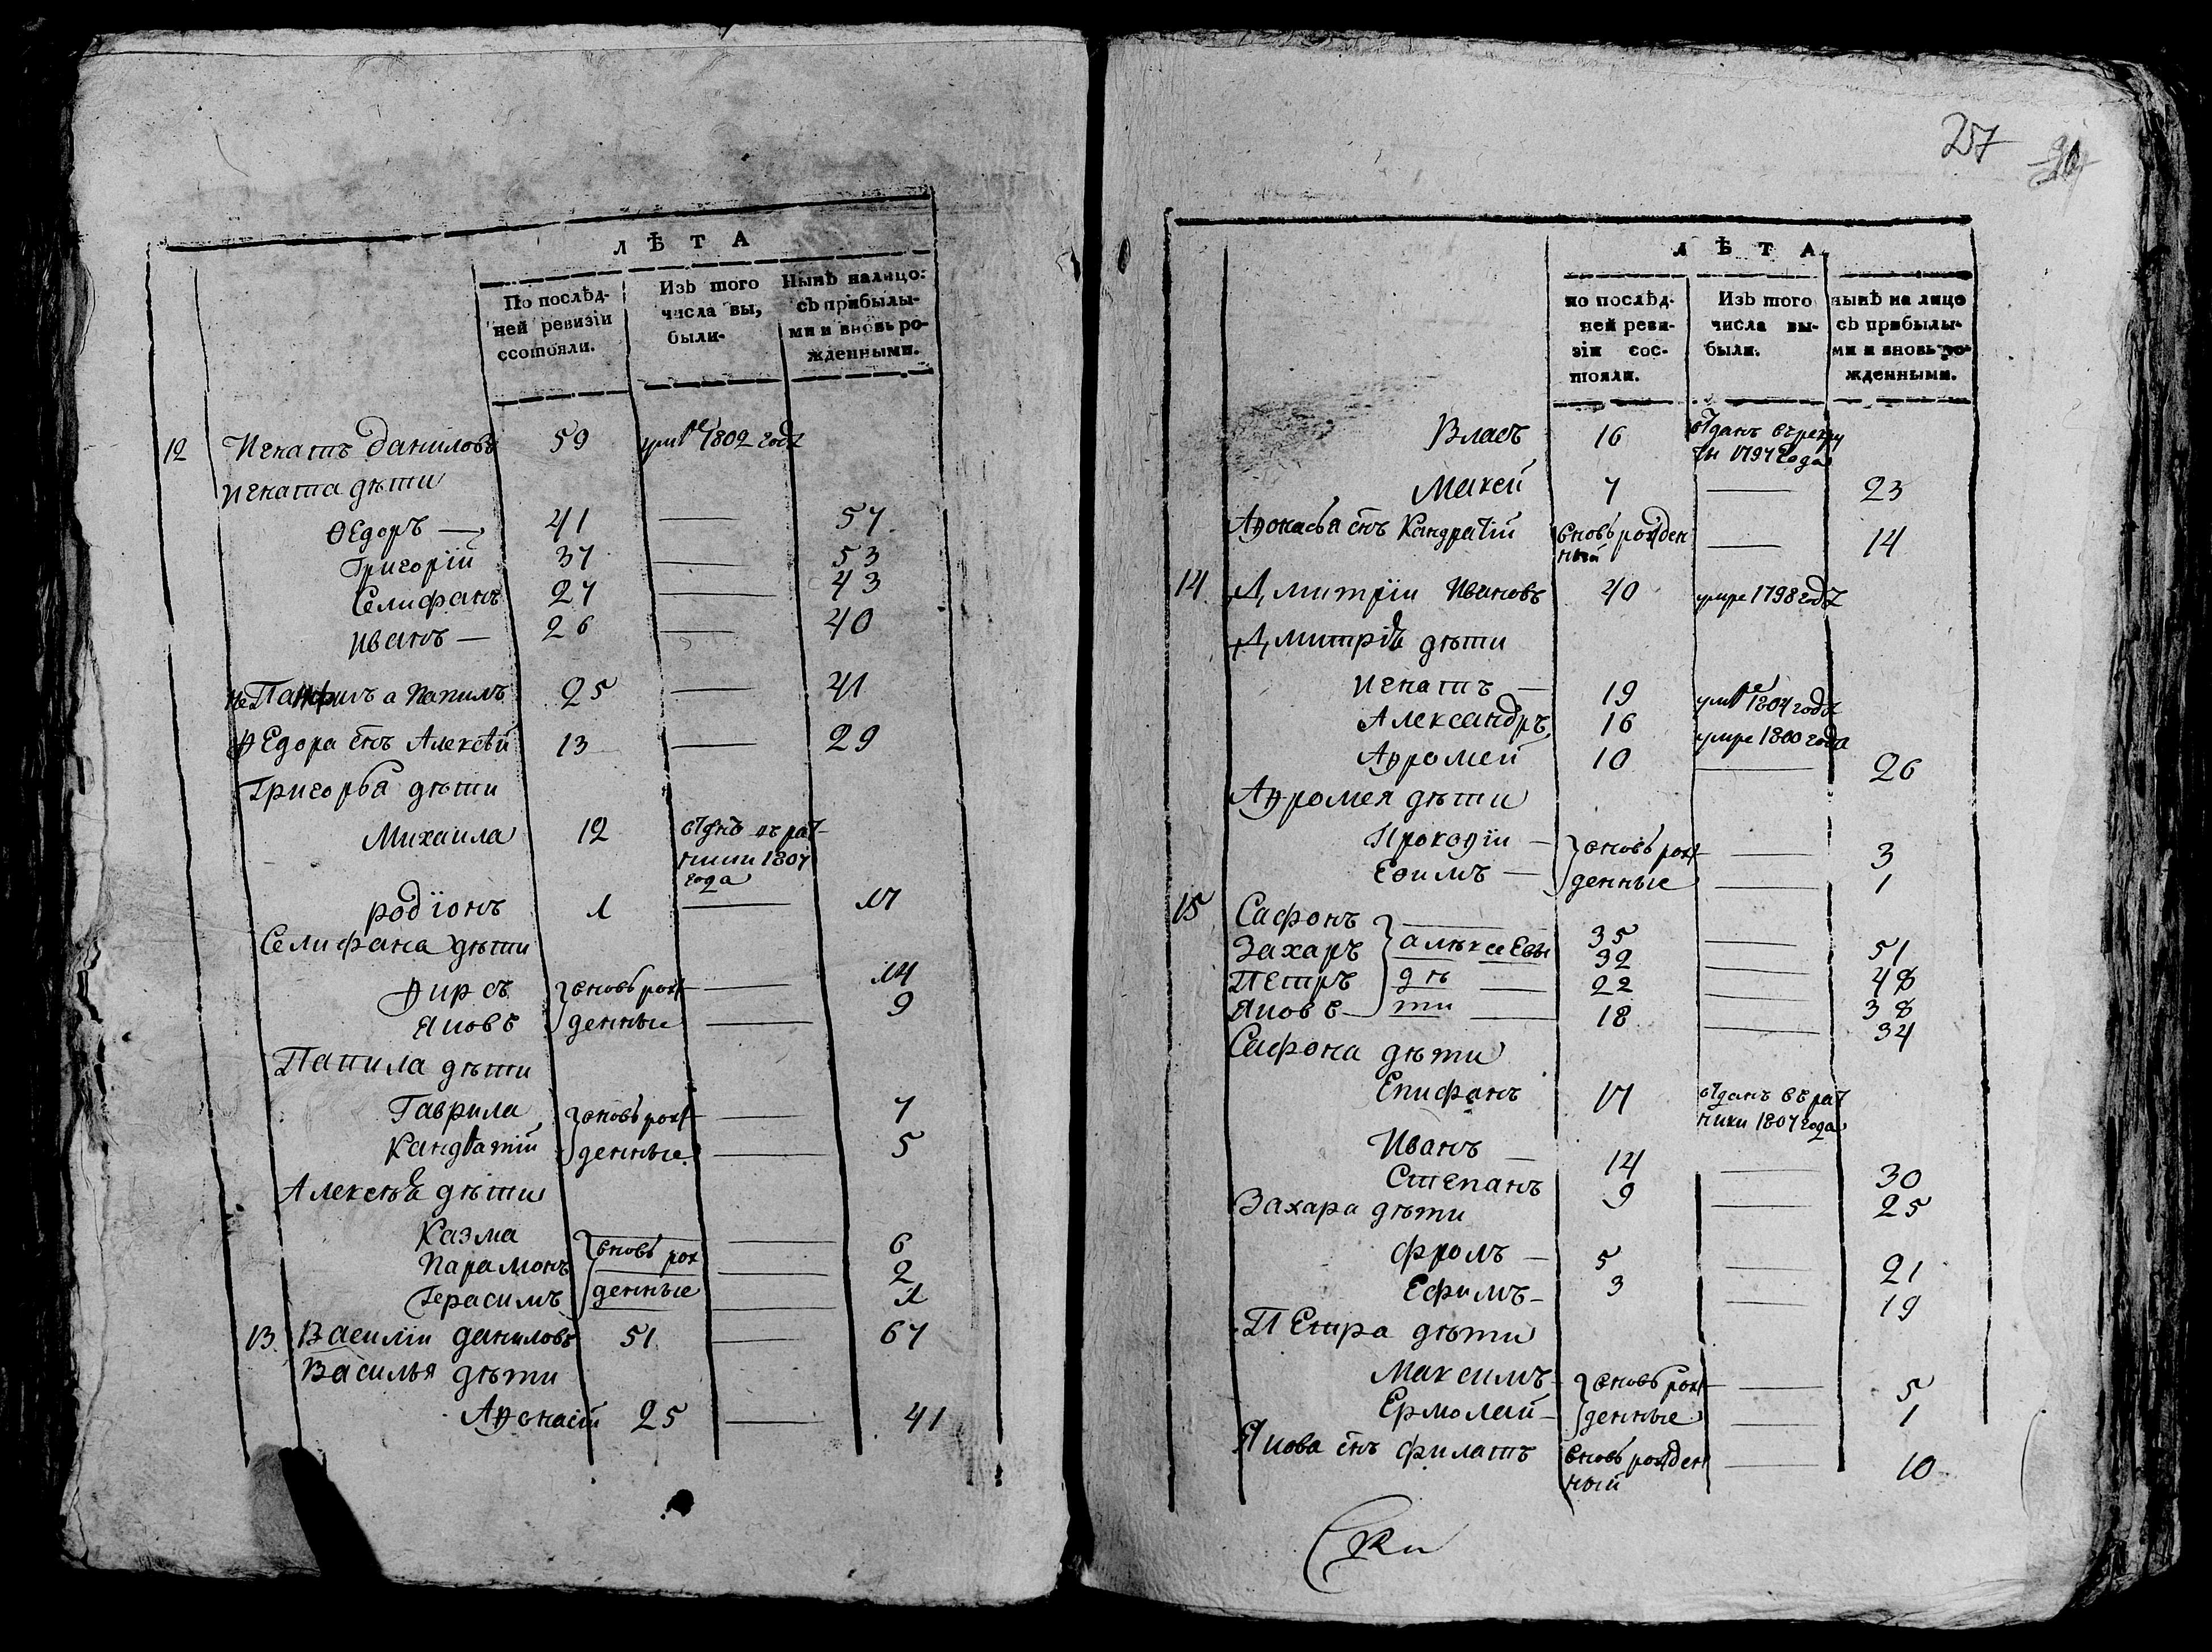 ЛѢТА
По послѣд-
ней ревизіи
состояли.
Изъ того
числа вы,
были.
Нынѣ налицо.
съ прибылы-
ми и вновь ро-
жденными.
12 Игнатъ Даниловъ 59 умре 1802 года
Игната дѣти
Ѳедоръ — 41 — 57
Григорій 37 — 53
Селифанъ 27 — 43
Иванъ — 26 — 40
не Панфилъ а Папилъ 25 — 41
Ѳедора снъ Алексѣй 13 — 29
Григорья дѣти
Михаила 12 отднъ въ рат
ники 1807
года
родіонъ 1 — 17
Селифана дѣти
Ѳирсъ } вновь рож — 14
Яковъ } денные — 9
Папила дѣти
Гаврила } вновь рож — 7
Кандратій } денные — 5
Алексѣя дѣти
Казма } вновь рож — 6
Парамонъ — 2
Герасимъ } денные — 1
13 Василіи Даниловъ 51 — 67
Василья дѣти
Аѳонасій 25 — 41
257
ЛѢТА
по послѣд-
ней реви-
зіи сос-
тояли.
Изъ того
числа вы-
были.
нынѣ на лицо
съ прибылы-
ми и вновь ро-
жденными.
Власъ 16 отданъ въ рекру
ты 1797 года
Макей 7 — 23
Аѳонасья снъ Кандратій вновь рожден — 14
ный
14 Дмитріи Ивановъ 40 умре 1798 года
Дмитрія дѣти
Игнатъ — 19 умре 1804 года
Александръ 16 умре 1800 года
Аѳромей 10 — 26
Аѳромея дѣти
Прокоѳіи — } вновь рож — 3
Еѳимъ — } денные — 1
15 Сафонъ } 35 — 51
Захаръ } алѣксеевы 32 — 48
Петръ } дѣ 22 — 38
Яковъ — } ти 18 — 34
Сафона дѣти
Епифанъ 17 отданъ въ рат
ники 1807 года
Иванъ — 14 — 30
Степанъ 9 — 25
Захара дѣти
Фролъ — 5 — 21
Ефимъ — 3 — 19
Петра дѣти
Максимъ } вновь рож — 5
Ермолай — } денные — 1
Якова снъ Филатъ вновь рожден — 10
ный